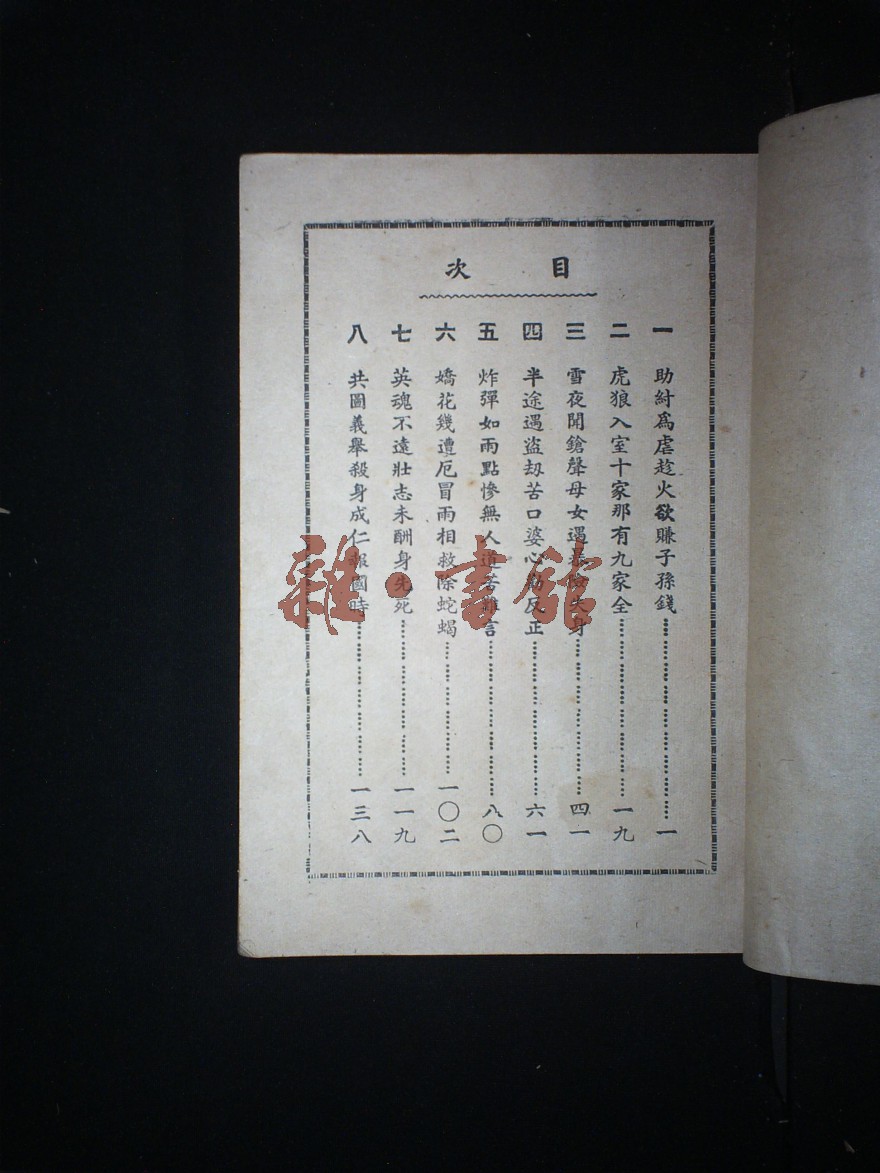 目次
一 助紂為虐趁火欲賺子孫錢……一
二 虎狼入室十家那有九家全……一九
三 雪夜開鎗聲母女遇 失身……四一
四 半途遇盜刼苦口婆心 反正……六一
五 炸彈如雨點慘無人道苦難言……八〇
六 嬌花幾遭厄冒雨相救除蛇蝎……一〇二
七 英魂不遠壯志未酬身先死……一一九
八 共圖義舉殺身成仁報國時……一三八
雜·書館